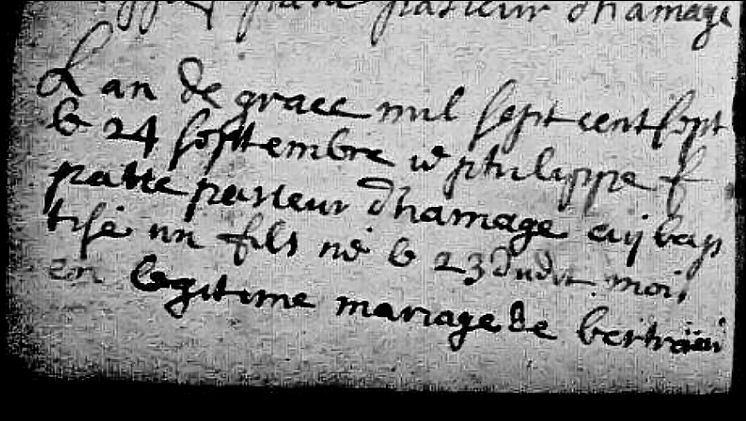 pasteur dhamage
L an de grace mil sept cent sept
le 24 septtembre je philippe f
patte pasteur dhamage ay bap
tisé un fils né le 23 dudit mois
en legitime mariage de bertrand